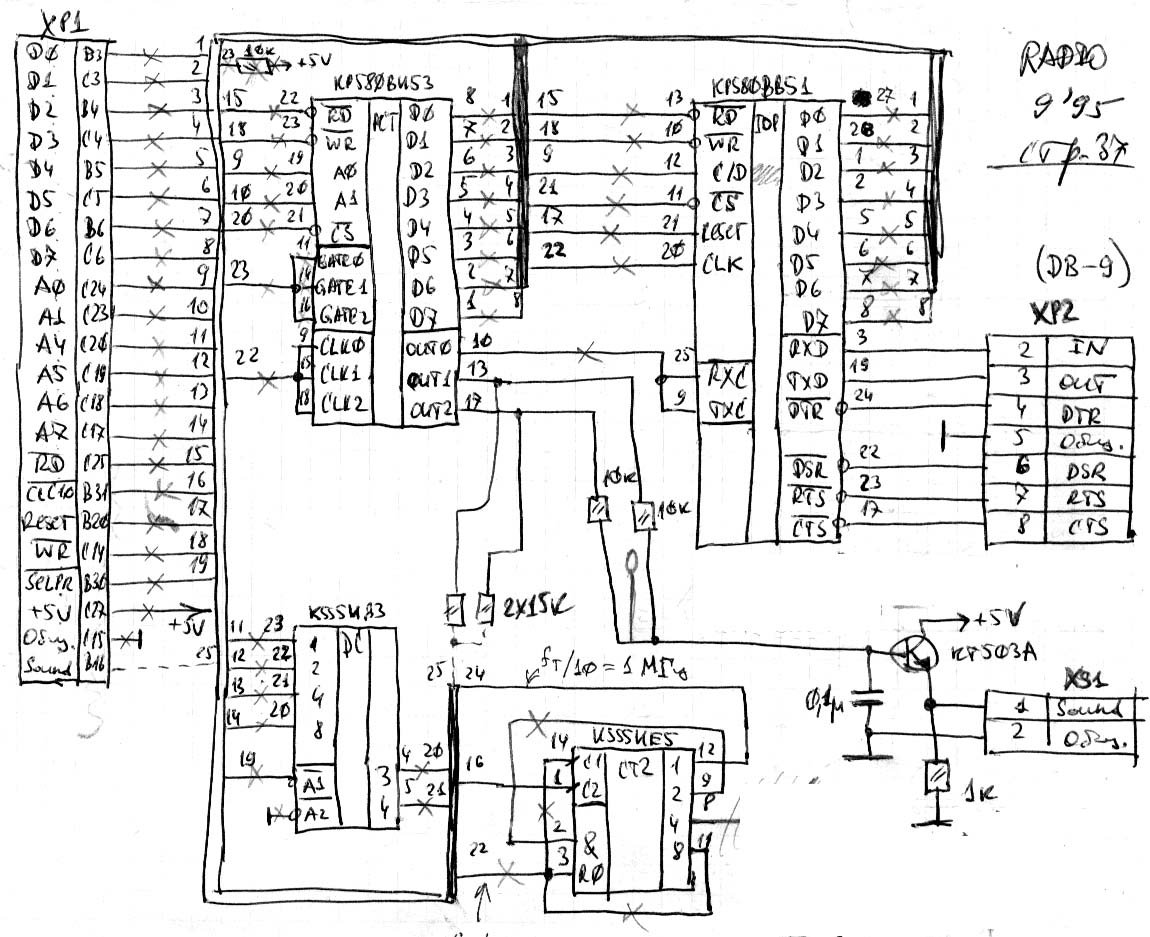 XP1
DØ B3 1
D1 C3 2
D2 B4 3
D3 C4 4
D4 B5 5
D5 C5 6
D6 B6 7
D7 C6 8
AØ C24 9
A1 C23 10
A4 C20 11
A5 C19 12
A6 C18 13
A7 C17 14
RD C25 15
B31 16
RESET B20 17
WR C14 18
SELPR B30 19
+5V C27 +5V
Общ. C15
Sound B16 25
23 10K +5V
КР580ВИ53
15 22 RD PCT DØ 8 1
18 23 WR D1 7 2
9 19 AØ D2 6 3
10 20 A1 D3 5 4
20 21 CS D4 4 5
11 GATEØ D5 3 6
23 14 GATE1 D6 2 7
16 GATE2 D7 1 8
9 CLKØ OUTØ 10
22 15 CLK1 OUT1 13
18 CLK2 OUT2 17
КР580ВВ51
15 13 RD IOP DØ 27 1
18 10 WR D1 28 2
9 12 C/D D2 1 3
21 11 CS D3 2 4
17 21 RESET D4 5 5
22 20 CLK D5 6 6
D6 7 7
D7 8 8
RXD 3
25 RXC TXD 19
9 TXC DTR 24
DSR 22
RTS 23
CTS 17
RADIO
9'95
стр. 37
(DB-9)
XP2
2 IN
3 OUT
4 DTR
5 Общ.
6 DSR
7 RTS
8 CTS
10K
10K
2X15K
К555ИД3
11 23 1 DC
12 22 2
13 21 4
14 20 8
19 A1 3 4 20
A2 4 5 21
25 24 fT/10 = 1 МГц
К555ИЕ5
14 C1 CT2 1 12
16 1 C2 2 9
2 & 4 8
22 3 RØ 8 11
+5V
КТ503А
0,1µ
1K
XS1
1 Sound
2 Общ.